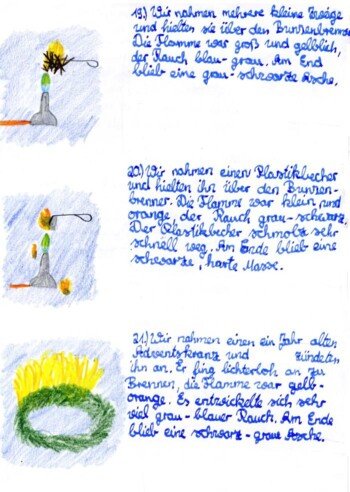 19.) Wir nahmen mehrere kleine Zweige
und hielten sie über den Bunsenbrenner.
Die Flamme war groß und gelblich,
der Rauch blau-grau. Am End
blieb eine grau-schwarze Asche.
20.) Wir nahmen einen Plastikbecher
und hielten ihn über den Bunsen-
brenner. Die Flamme war klein und
orange, der Rauch grau-schwarz.
Der Plastikbecher schmolz sehr
schnell weg. Am Ende blieb eine
schwarze, harte Masse.
21.) Wir nahmen einen ein Jahr alten
Adventskranz und zündeten
ihn an. Er fing lichterloh an zu
Brennen, die Flamme war gelb-
orange. Es entwickelte sich sehr
viel grau-blauer Rauch. Am Ende
blieb eine schwarz-graue Asche.